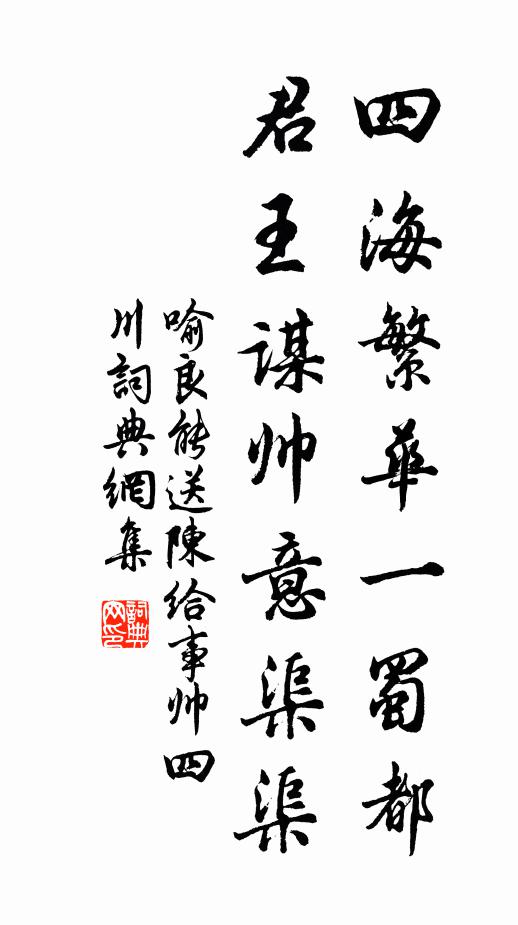 四海繁華一蜀都
君王謀帅意渠渠
喻良能送陳给事帅四
川詞典網集
詞典网印